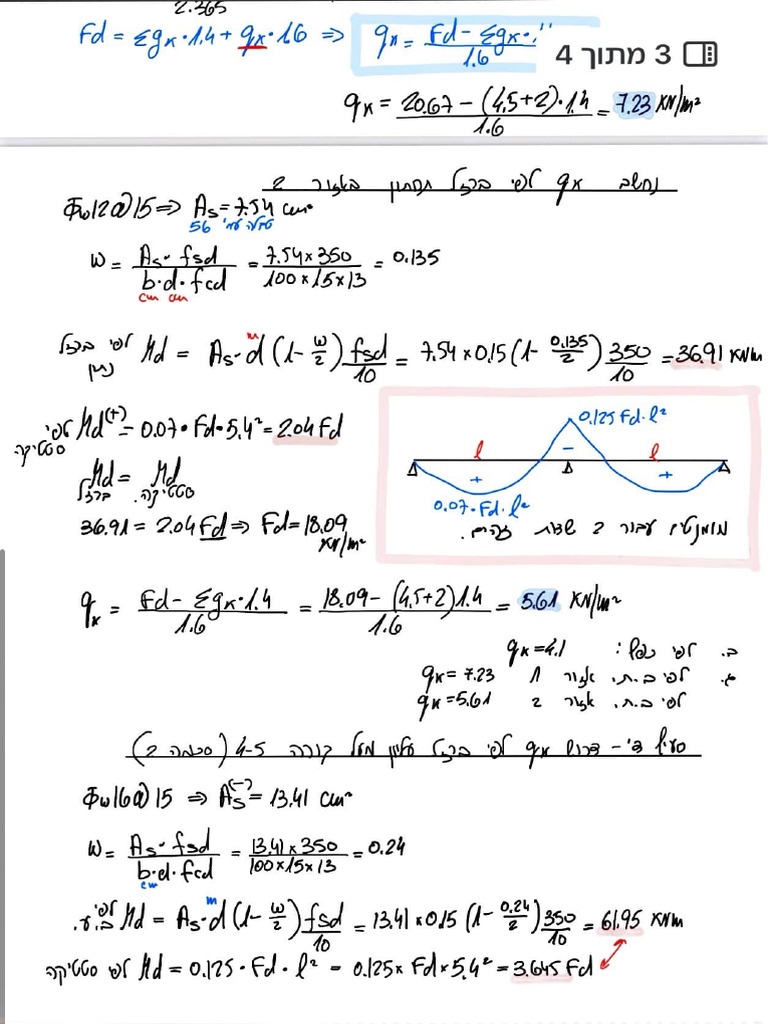 2.365
Fd = Σgk·1.4 + qk·1.6 ⇒ qk = (Fd - Σgk·1.4) / 1.6
3 מתוך 4
qk = (20.67 - (4.5+2)·1.4) / 1.6 = 7.23 KN/m²
נחשב qk לפי ברזל תחתון באזור 2
Φw12@15 ⇒ As = 7.54 cm²
56 טבלה עמ'
W = (As·fsd) / (b·d·fcd) = (7.54×350) / (100×15×13) = 0.135
cm cm
לפי ברזל נתון Md = As·d (1 - w/2) fsd/10 = 7.54×0.15 (1 - 0.135/2) 350/10 = 36.91 KNm
m
לפי סטטיקה Md(+) = 0.07·Fd·5.4² = 2.04Fd
0.125Fd·l²
l - l
+ +
0.07·Fd·l²
מומנטים עבור 2 שדות
Md ברזל = Md סטטיקה
36.91 = 2.04Fd ⇒ Fd = 18.09 KN/m²
qk = (Fd - Σgk·1.4) / 1.6 = (18.09 - (4.5+2)1.4) / 1.6 = 5.61 KN/m²
ב. לפי כפל: qk = 4.1
א. לפי ב.ת. אזור 1 qk = 7.23
לפי ב.ת. אזור 2 qk = 5.61
סעיף ב' - דרוש qk לפי ברזל עליון מעל קורה 4-5 (סכמה 2)
Φw16@15 ⇒ As(-) = 13.41 cm²
W = (As·fsd) / (b·d·fcd) = (13.41×350) / (100×15×13) = 0.24
cm
לפי ב.ע. Md = As·d (1 - w/2) fsd/10 = 13.41×0.15 (1 - 0.24/2) 350/10 = 61.95 KNm
m
לפי סטטיקה Md = 0.125·Fd·l² = 0.125×Fd×5.4² = 3.645Fd